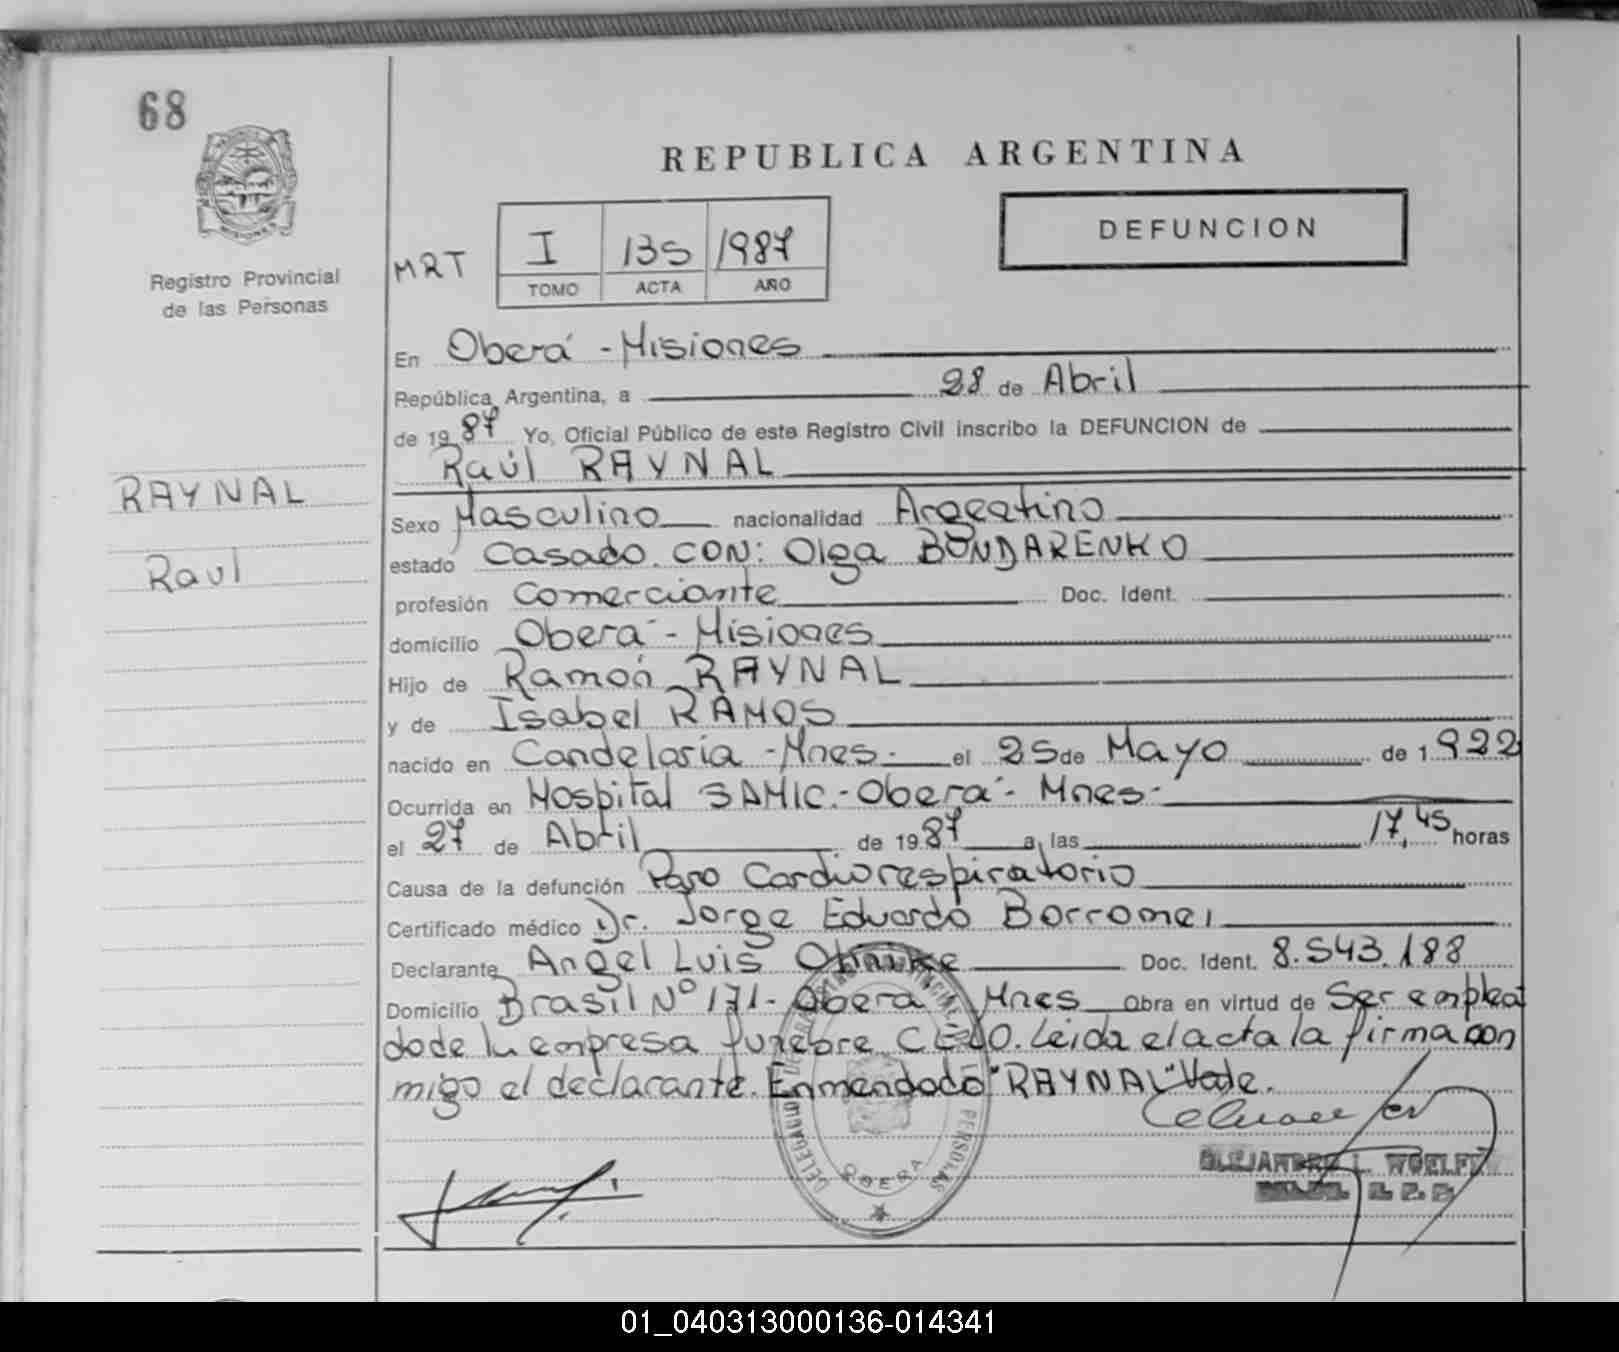 68
REPUBLICA ARGENTINA
DEFUNCION
MISIONES
Registro Provincial
de las Personas
MRT
I 135 1987
TOMO ACTA AÑO
En Oberá - Misiones
República Argentina, a 28 de Abril
de 1987 Yo, Oficial Público de este Registro Civil inscribo la DEFUNCION de
Raúl RAYNAL
RAYNAL
Raul
Sexo Masculino nacionalidad Argentino
estado Casado. CON: Olga BONDARENKO
profesión Comerciante Doc. Ident.
domicilio Oberá - Misiones
Hijo de Ramón RAYNAL
y de Isabel RAMOS
nacido en Candelaria - Mnes. el 25 de Mayo de 1922
Ocurrida en Hospital SAMIC.- Oberá - Mnes.
el 27 de Abril de 1987 a las 17,45 horas
Causa de la defunción Paro Cardiorespiratorio
Certificado médico Dr. Jorge Eduardo Borromei
Declarante Angel Luis Doc. Ident. 8.543.188
Domicilio Brasil Nº 171 - Oberá Mnes Obra en virtud de Ser emplea
do de la empresa funebre CELO. Leida el acta la firma con
migo el declarante. Enmendado "RAYNAL" Vale.
OBERA
01_040313000136-014341